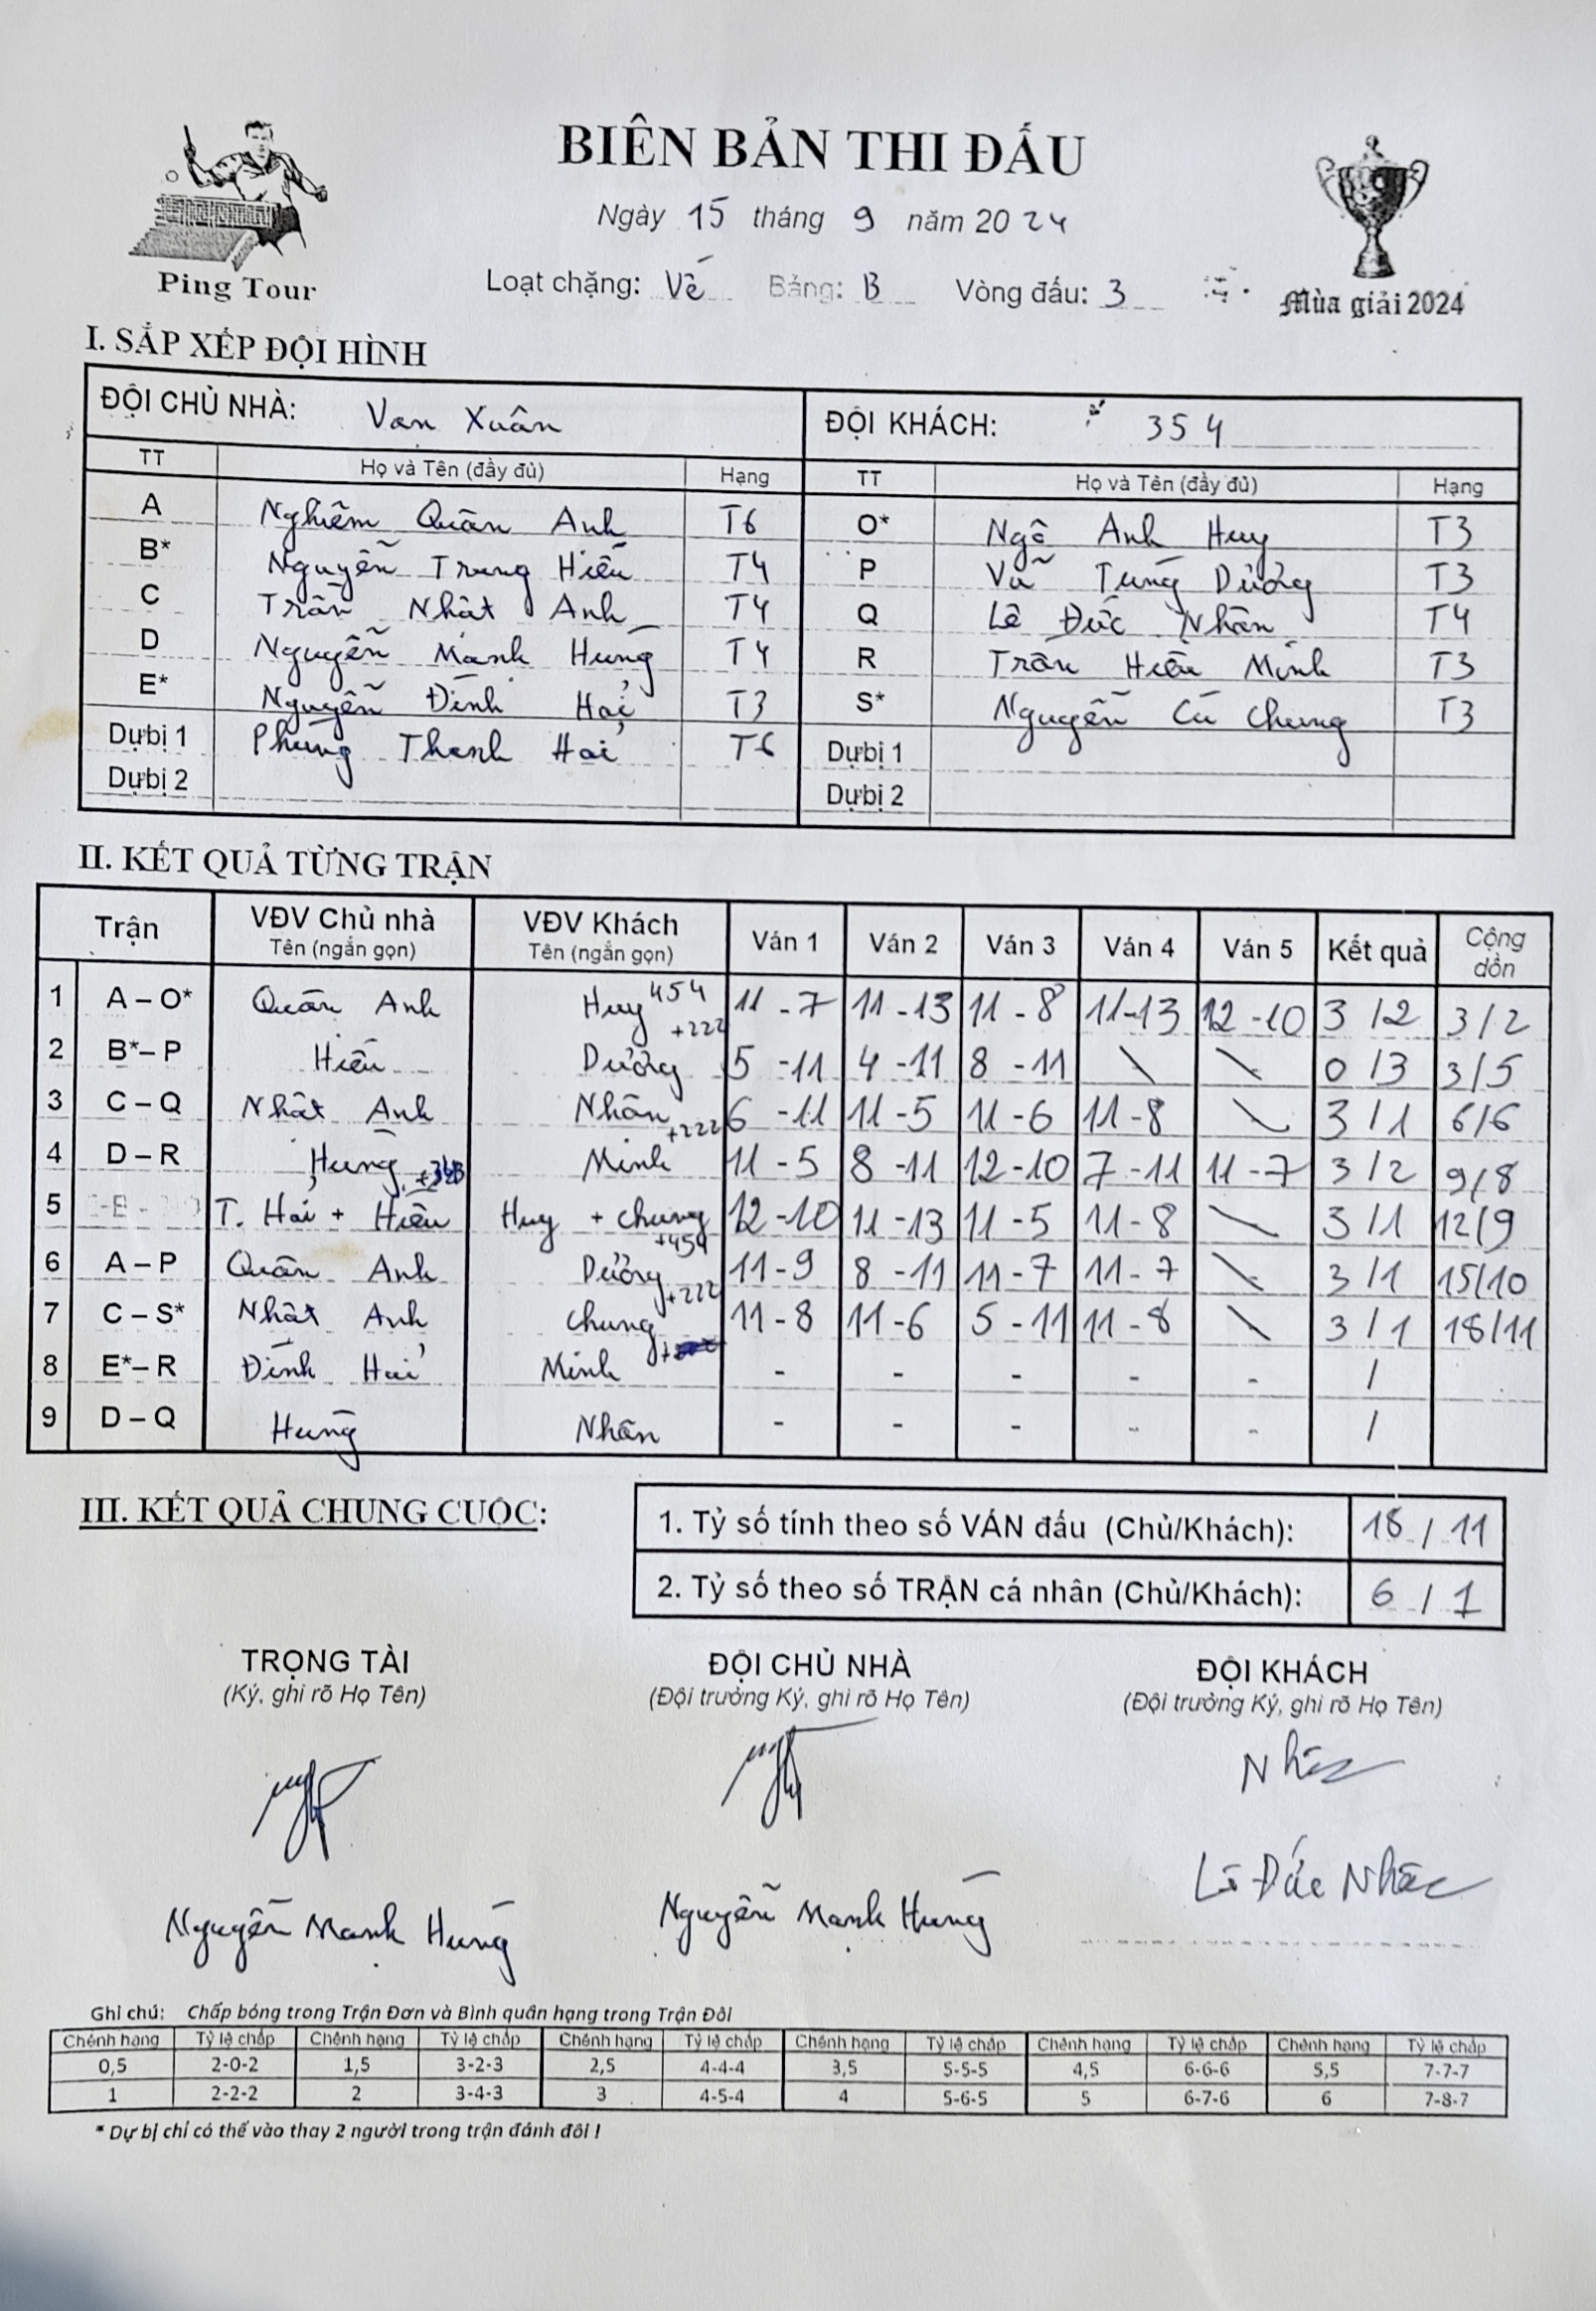 BIÊN BẢN THI ĐẤU
Ngày 15 tháng 9 năm 2024
Ping Tour
Loạt chặng: Về Bảng: B Vòng đấu: 3
Mùa giải 2024
I. SẮP XẾP ĐỘI HÌNH
ĐỘI CHỦ NHÀ: Vạn Xuân ĐỘI KHÁCH: 354
TT Họ và Tên (đầy đủ) Hạng TT Họ và Tên (đầy đủ) Hạng
A Nghiêm Quân Anh T6 O* Ngô Anh Huy T3
B* Nguyễn Trung Hiếu T4 P Vũ Tùng Dương T3
C Trần Nhật Anh T4 Q Lê Đức Nhân T4
D Nguyễn Mạnh Hùng T4 R Trần Hiếu Minh T3
E* Nguyễn Đình Hải T3 S* Nguyễn Cú Chung T3
Dự bị 1 Phùng Thanh Hải T6 Dự bị 1
Dự bị 2 Dự bị 2
II. KẾT QUẢ TỪNG TRẬN
Trận VĐV Chủ nhà VĐV Khách Ván 1 Ván 2 Ván 3 Ván 4 Ván 5 Kết quả Cộng dồn
Tên (ngắn gọn) Tên (ngắn gọn)
1 A – O* Quân Anh Huy 454 11 - 7 11 - 13 11 - 8 11 - 13 12 - 10 3 / 2 3 / 2
2 B* – P Hiếu Dương +222 5 - 11 4 - 11 8 - 11 \ \ 0 / 3 3 / 5
3 C – Q Nhật Anh Nhân 6 - 11 11 - 5 11 - 6 11 - 8 \ 3 / 1 6 / 6
4 D – R Hùng Minh +222 11 - 5 8 - 11 12 - 10 7 - 11 11 - 7 3 / 2 9 / 8
5 T. Hải + Hiếu Huy + Chung 12 - 10 11 - 13 11 - 5 11 - 8 \ 3 / 1 12 / 9
6 A – P Quân Anh Dương +454 11 - 9 8 - 11 11 - 7 11 - 7 \ 3 / 1 15 / 10
7 C – S* Nhật Anh Chung +222 11 - 8 11 - 6 5 - 11 11 - 8 \ 3 / 1 18 / 11
8 E* – R Đình Hải Minh - - - - - /
9 D – Q Hùng Nhân - - - - - /
III. KẾT QUẢ CHUNG CUỘC:
1. Tỷ số tính theo số VÁN đấu (Chủ/Khách): 18 / 11
2. Tỷ số theo số TRẬN cá nhân (Chủ/Khách): 6 / 1
TRỌNG TÀI ĐỘI CHỦ NHÀ ĐỘI KHÁCH
(Ký, ghi rõ Họ Tên) (Đội trưởng Ký, ghi rõ Họ Tên) (Đội trưởng Ký, ghi rõ Họ Tên)
Nhân
Nguyễn Mạnh Hùng Nguyễn Mạnh Hùng Lê Đức Nhân
Ghi chú: Chấp bóng trong Trận Đơn và Bình quân hạng trong Trận Đôi
Chênh hạng Tỷ lệ chấp Chênh hạng Tỷ lệ chấp Chênh hạng Tỷ lệ chấp Chênh hạng Tỷ lệ chấp Chênh hạng Tỷ lệ chấp Chênh hạng Tỷ lệ chấp
0,5 2-0-2 1,5 3-2-3 2,5 4-4-4 3,5 5-5-5 4,5 6-6-6 5,5 7-7-7
1 2-2-2 2 3-4-3 3 4-5-4 4 5-6-5 5 6-7-6 6 7-8-7
* Dự bị chỉ có thể vào thay 2 người trong trận đánh đôi !